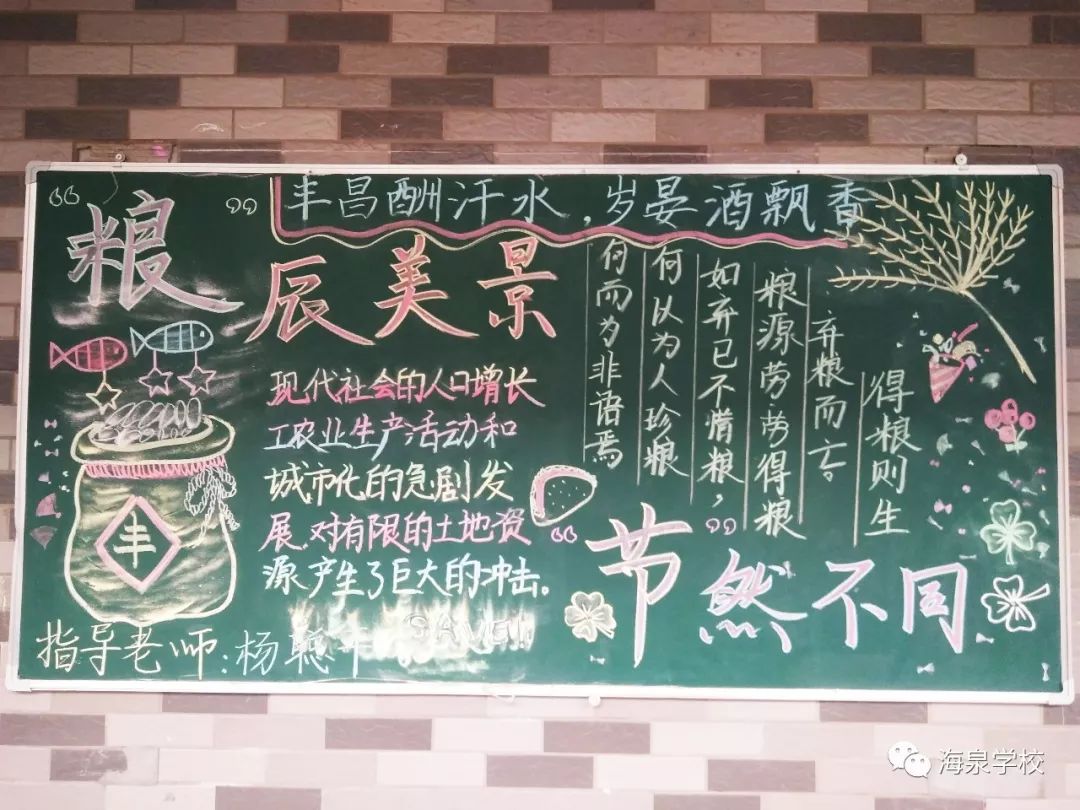 丰昌酬汗水，岁晏酒飘香
“粮”辰美景
现代社会的人口增长
工农业生产活动和
城市化的急剧发
展,对有限的土地资
源产生了巨大的冲击。
得粮则生
弃粮而亡。
粮源劳苈得粮
如弃已不惜粮，
何以为人珍粮
何而为非语焉
丰
“节”然不同
指导老师:杨聪
海泉学校